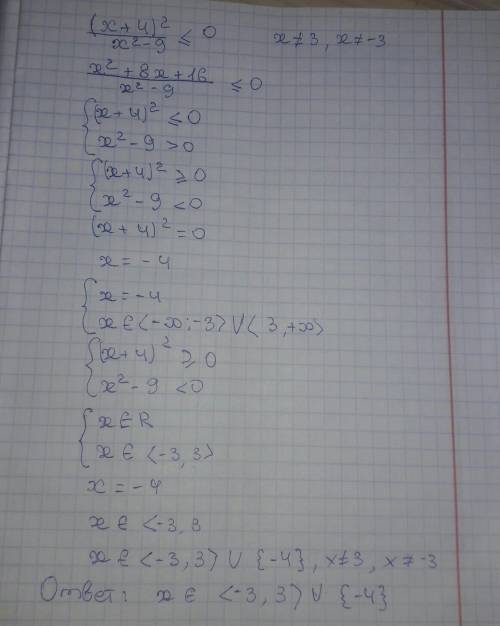 (x+4)²/x²-9 ≤ 0    x≠3, x≠-3
x²+8x+16/x²-9 ≤ 0
{(x+4)² ≤ 0
x²-9 > 0
{(x+4)² ≥ 0
x²-9 < 0
(x+4)² = 0
x = -4
{x = -4
x ∈ <-∞; -3> ∪ <3, +∞>
{(x+4)² ≥ 0
x²-9 < 0
{x ∈ R
x ∈ <-3, 3>
x = -4
x ∈ <-3, 3
x ∈ <-3, 3> ∪ {-4}, x≠3, x≠-3
Ответ: x ∈ <-3, 3> ∪ {-4}